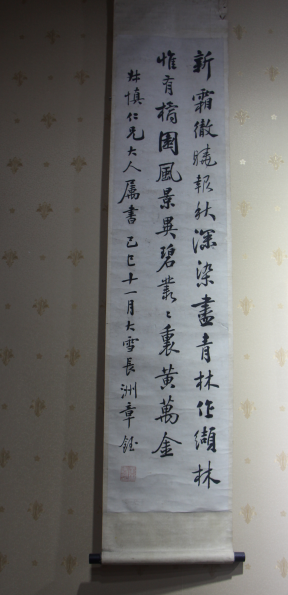 新霜徹曉報秋深染盡青林作纈林
惟有橘園風景異碧叢〻裏黃萬金
叔慎仁兄大人屬書 己巳十一月大雪長洲章鈺